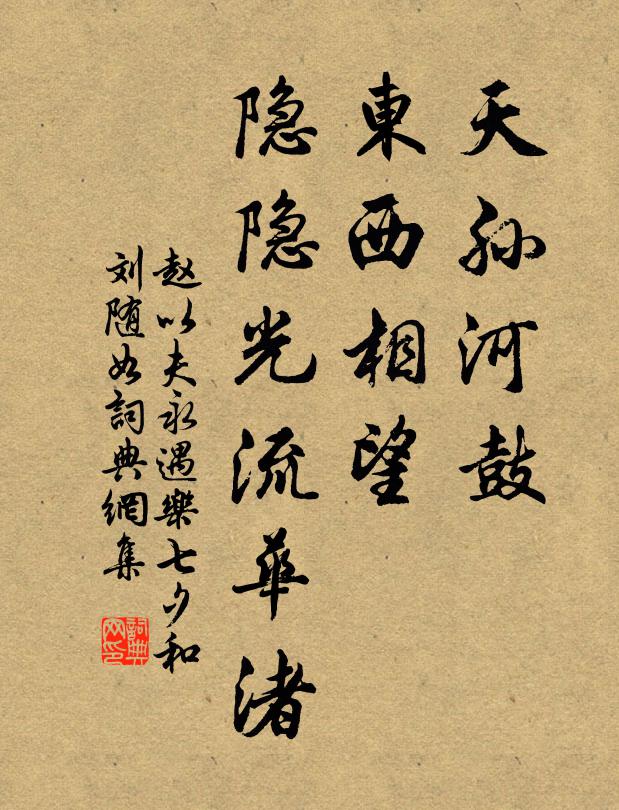 天孫河鼓
東西相望
隐隐光流華渚
赵以夫永遇樂七夕和
刘随如詞典網集
詞典网印